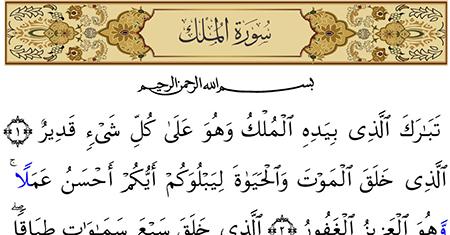 سُورَةُ المُلْكِ
بسم الله الرحمن الرحيم
تَبَٰرَكَ ٱلَّذِى بِيَدِهِ ٱلْمُلْكُ وَهُوَ عَلَىٰ كُلِّ شَىْءٍ قَدِيرٌ ﴿١﴾
ٱلَّذِى خَلَقَ ٱلْمَوْتَ وَٱلْحَيَوٰةَ لِيَبْلُوَكُمْ أَيُّكُمْ أَحْسَنُ عَمَلًا ۚ
وَهُوَ ٱلْعَزِيزُ ٱلْغَفُورُ ﴿٢﴾ ٱلَّذِى خَلَقَ سَبْعَ سَمَٰوَٰتٍ طِبَاقًا ۖ